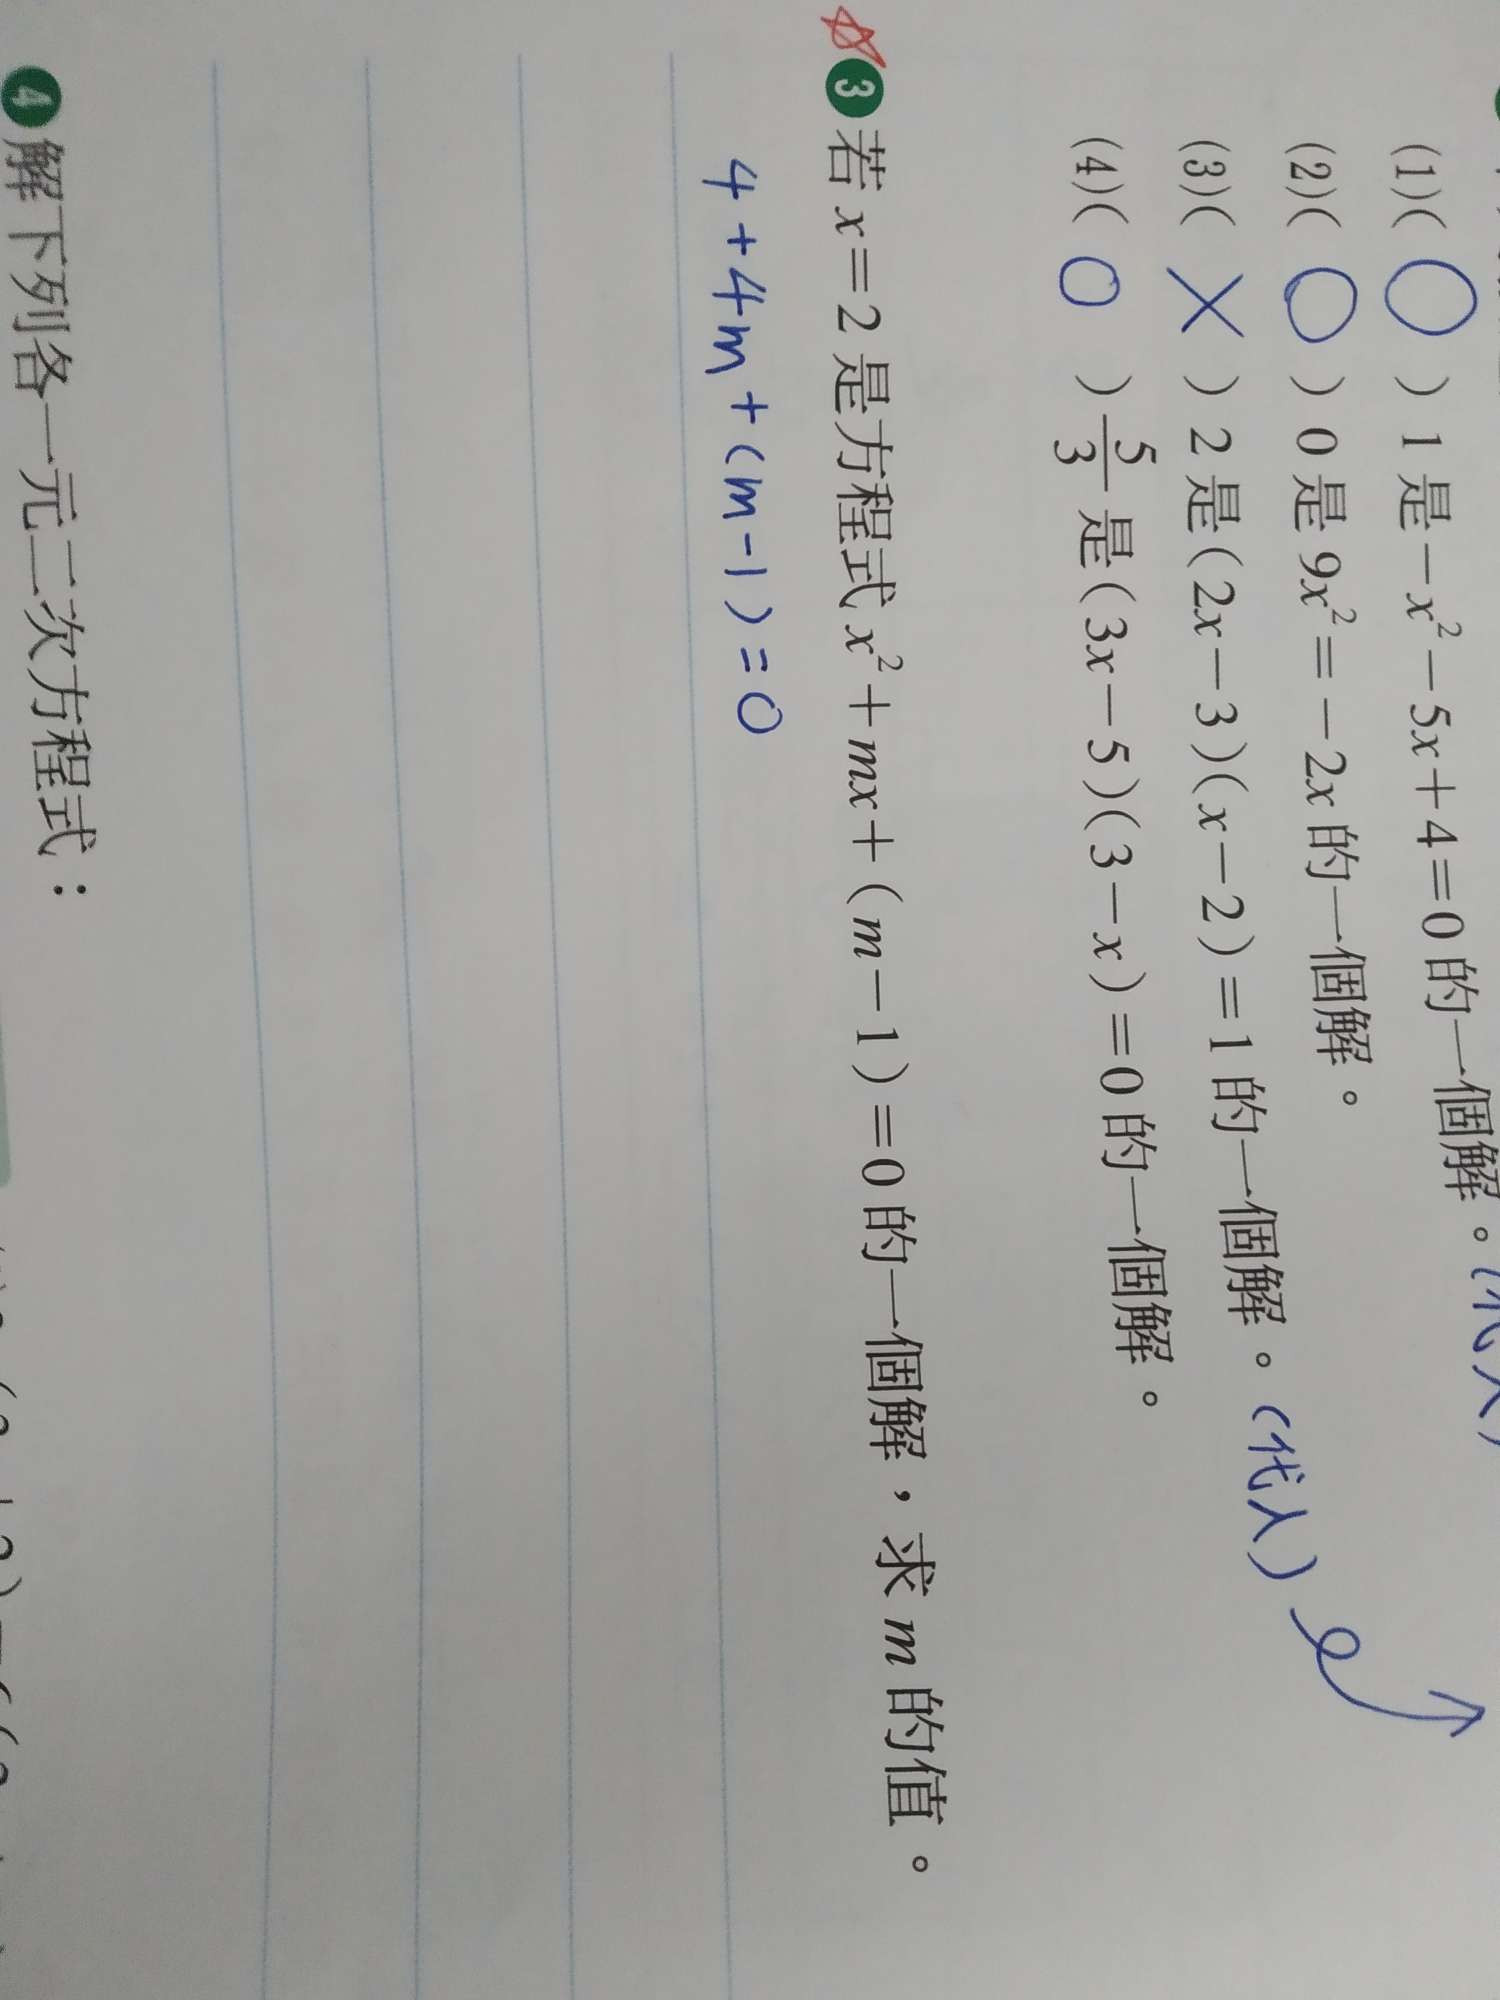 (1)( ○ ) 1 是 -x² - 5x + 4 = 0 的一個解。(代入)
(2)( ○ ) 0 是 9x² = -2x 的一個解。
(3)( × ) 2 是 (2x - 3)(x - 2) = 1 的一個解。(代入)
(4)( ○ ) 5/3 是 (3x - 5)(3 - x) = 0 的一個解。
3 若 x = 2 是方程式 x² + mx + (m - 1) = 0 的一個解,求 m 的值。
4 + 4m + (m - 1) = 0
4 解下列各一元二次方程式: